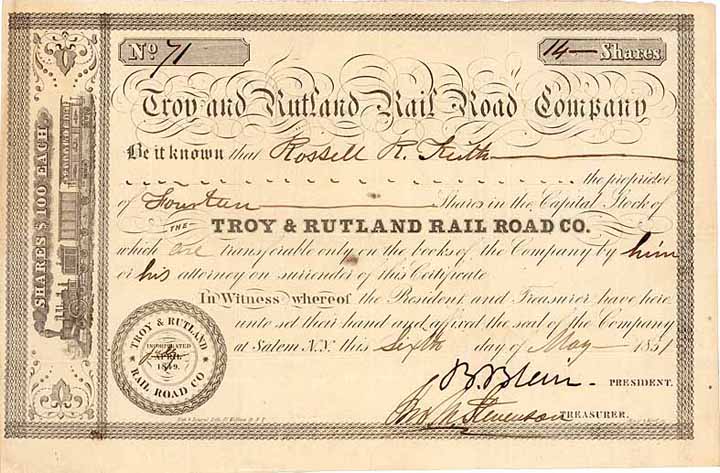 No 71
14 — Shares
Troy and Rutland Rail Road Company
Be it known that Rossell R. Keith
the proprietor
of Fourteen Shares in the Capital Stock of
THE TROY & RUTLAND RAIL ROAD CO.
which are transferable only on the books of the Company by him
or his attorney on surrender of this Certificate
In Witness whereof the President and Treasurer have here
unto set their hand and affixed the seal of the Company
at Salem N.Y. this Sixth day of May 1851
PRESIDENT.
TREASURER.
SHARES $ 100 EACH
TROY & RUTLAND
INCORPORATED
APRIL
1849.
RAIL ROAD CO